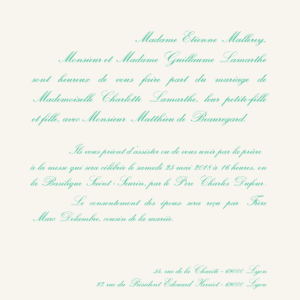 Madame Etienne Mallerey,
Monsieur et Madame Guillaume Lamarthe
sont heureux de vous faire part du mariage de
Mademoiselle Charlotte Lamarthe, leur petite-fille
et fille, avec Monsieur Matthieu de Beauregard.
Ils vous prient d'assister ou de vous unir par la prière
à la messe qui sera célébrée le samedi 25 mai 2018 à 16 heures, en
la Basilique Saint-Seurin, par le Père Charles Dufour.
Le consentement des époux sera reçu par Frère
Marc Delambre, cousin de la mariée.
rue de la Charité - 69002 Lyon
rue du Président Edouard Herriot - 69000 Lyon